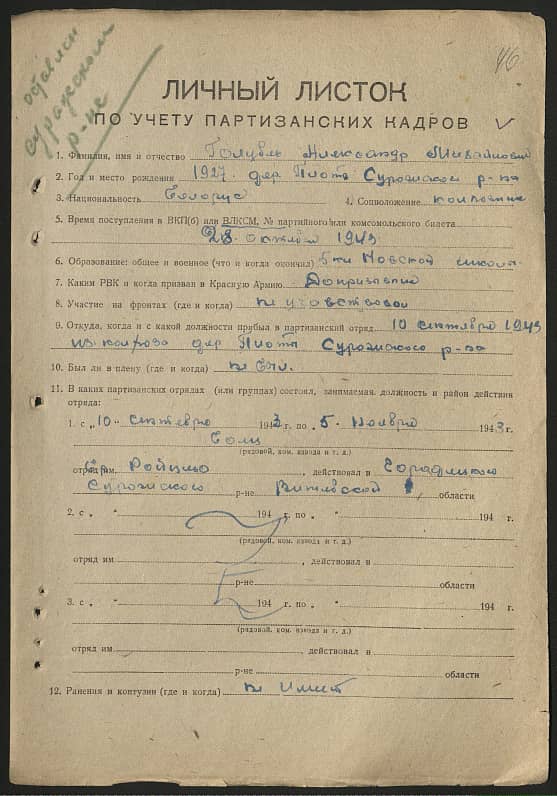 46
оставлен
суражском
р-не
ЛИЧНЫЙ ЛИСТОК
ПО УЧЕТУ ПАРТИЗАНСКИХ КАДРОВ
1. Фамилия, имя и отчество Голубль Александр Михайлович
2. Год и место рождения 1927. дер Плота Суражской р-на
3. Национальность Белорус 4. Соцположение колхозник
5. Время поступления в ВКП(б) или ВЛКСМ, № партийного или комсомольского билета
28. октября 1943
6. Образование: общее и военное (что и когда окончил) школа.
7. Каким РВК и когда призван в Красную Армию Допризывник
8. Участие на фронтах (где и когда) не участвовал
9. Откуда, когда и с какой должности прибыл в партизанский отряд 10 сентября 1943
из колхоза дер Плота Суражского р-на
10. Был ли в плену (где и когда) не был.
11. В каких партизанских отрядах (или группах) состоял, занимаемая должность и район действия
отряда:
1. с „10" сентября 1943 г. по „5" Ноября 1943 г.
Боец
(рядовой, ком. взвода и т. д.)
отряд им. Райцева, действовал в
Суражского р-не Витебской области
2. с „ " 194 г. по „ " 194 г.
(рядовой, ком. взвода и т. д.)
отряд им , действовал в
р-не области
3. с „ " 194 г. по „ " 194 г.
(рядовой, ком. взвода и т. д.)
отряд им. , действовал в
р-не области
12. Ранения и контузии (где и когда) не имеет